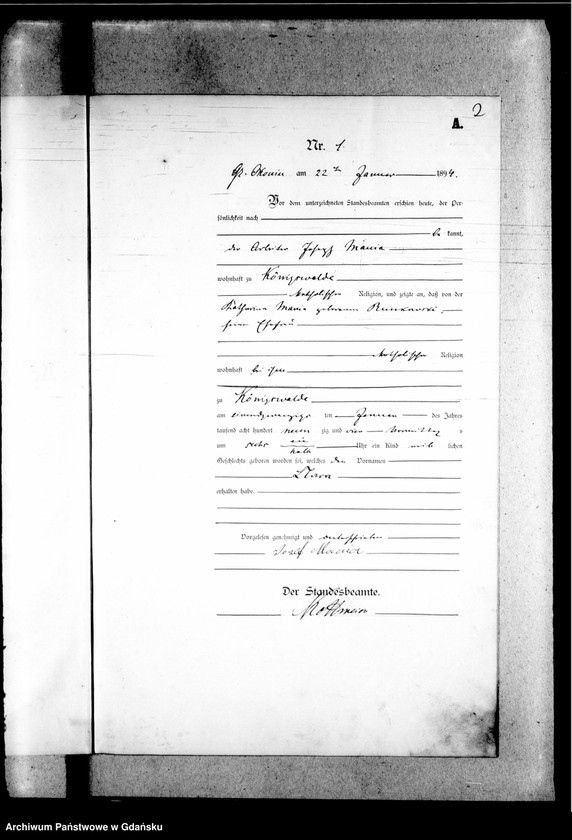 2
A.
Nr. 1
am 22ten Januar 1894.
Vor dem unterzeichneten Standesbeamten erschien heute, der Per-
sönlichkeit nach
be kannt,
der Arbeiter Joseph Mania
wohnhaft zu Königswalde
katholischer Religion, und zeigte an, daß von der
Katharina Mania geborenen
seiner Ehefrau
katholischer Religion
wohnhaft bei ihm
zu Königswalde
am einundzwanzigsten Januar des Jahres
tausend acht hundert neun zig und vier Vormittags
um sechs ein halb Uhr ein Kind weib lichen
Geschlechts geboren worden sei, welches den Vornamen
Clara
erhalten habe.
Vorgelesen, genehmigt und unterschrieben
Josef Mania
Der Standesbeamte.
Archiwum Państwowe w Gdańsku